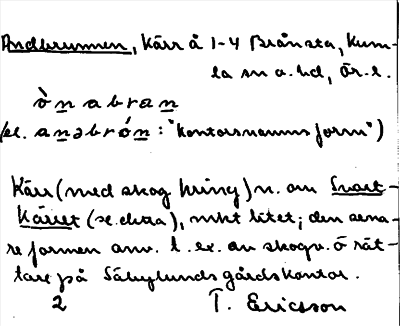 Andbrunnen, Kärr å 1-4 Brånsta, Kum-
la sn o. hd, Ör. l.
ò̀n a b r a n
(el. a n ə b r ó n : "kontorsnamns form")
Kärr (med skog kring) n. om Svart-
kärret (se. detta), mkt litet; den sena-
re formen anv. t. ex. av skogv. o rät-
tare på Säbylunds gårdskontor.
2 T. Ericsson